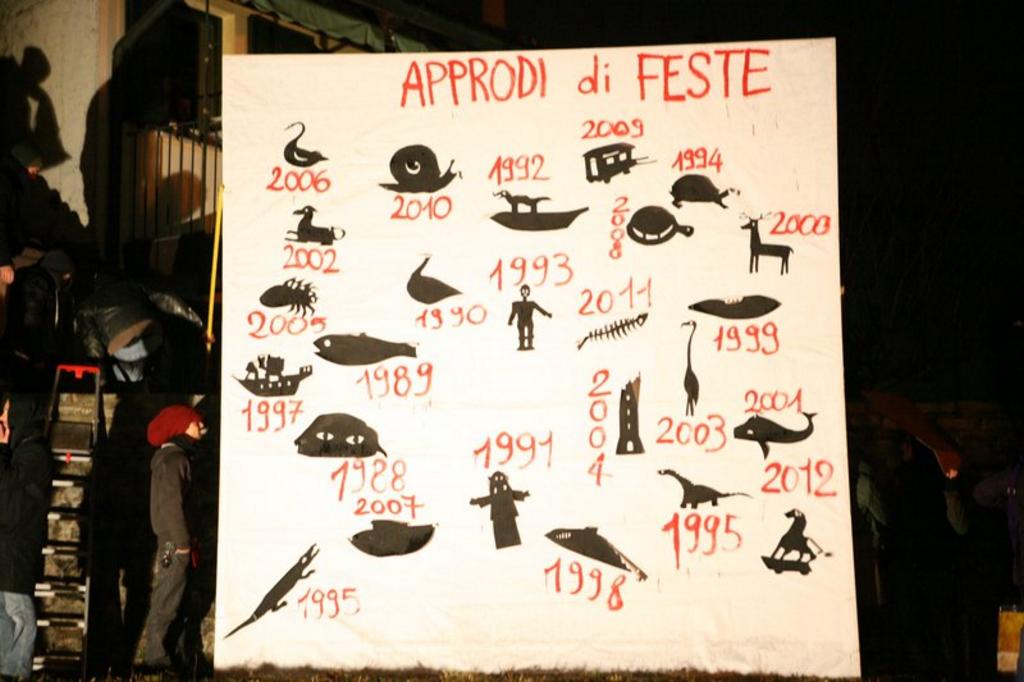 APPRODI di FESTE
2009
1992
1994
2006
2010
2008
2000
2002
1993
2011
2005
1990
1999
1989
1997
2004
2001
2003
1991
1988
2012
2007
1995
1998
1995